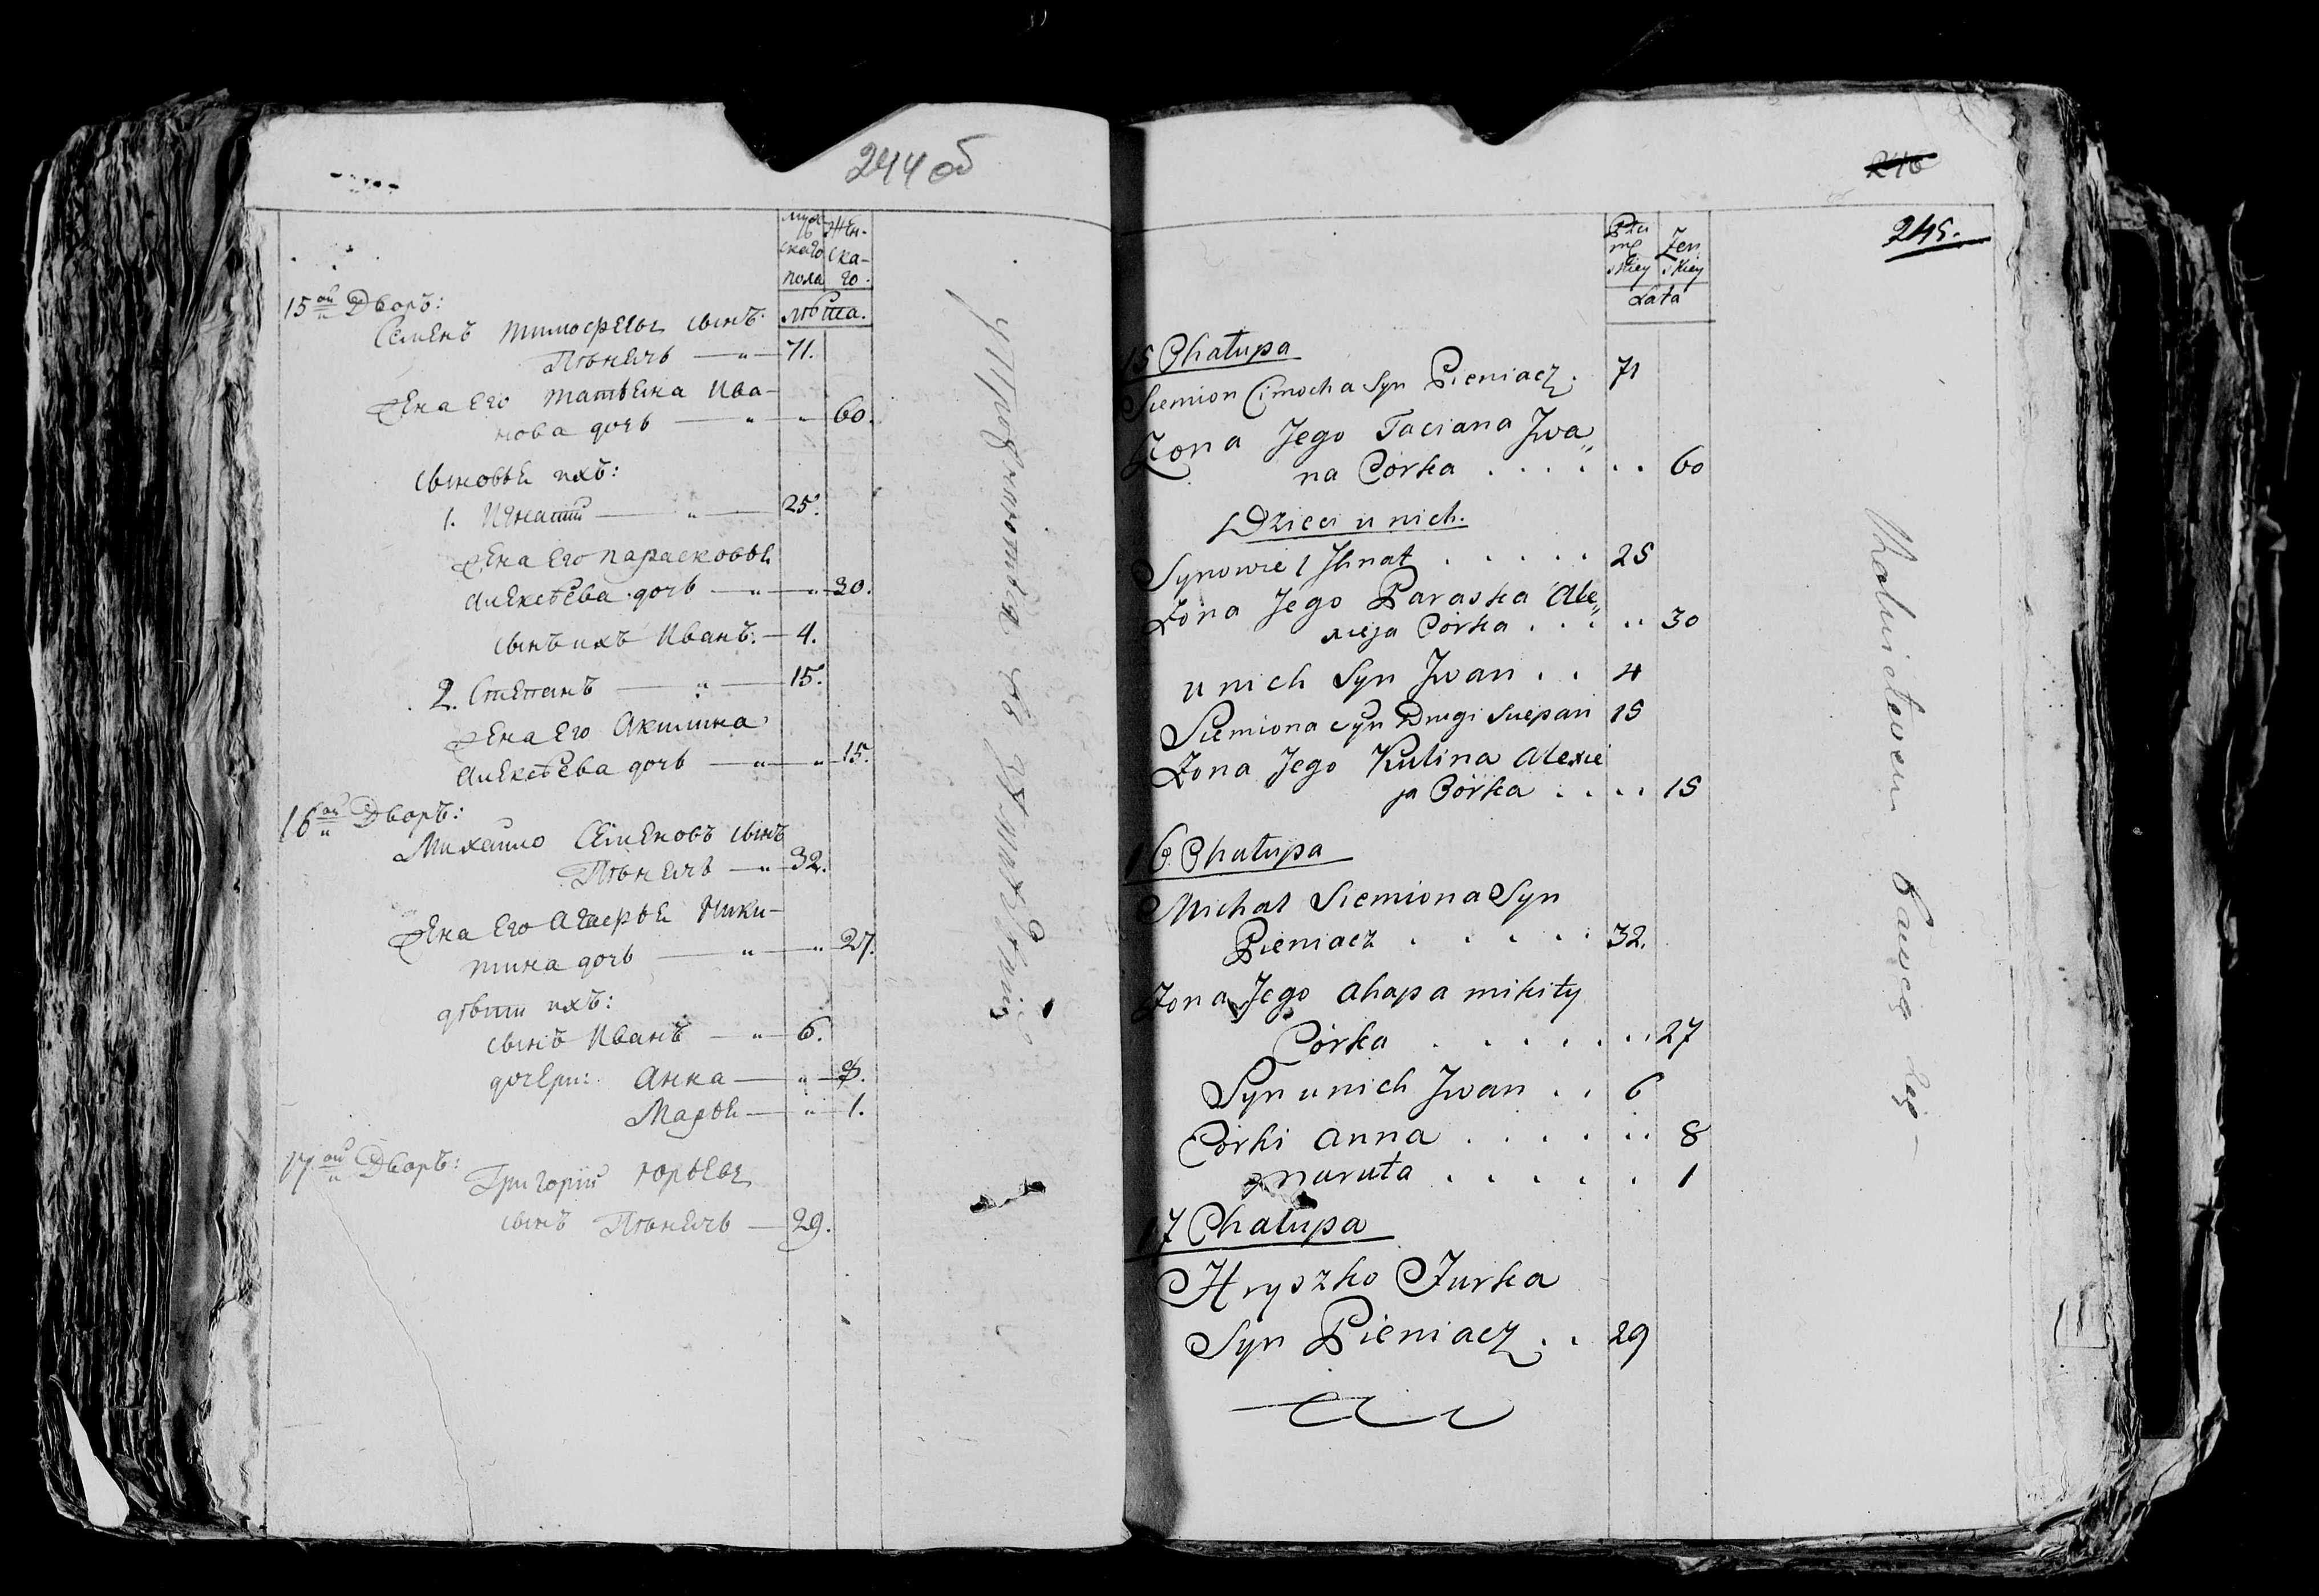 244 об
муж-
скаго
пола
Жен-
ска-
го.
лѣта.
15ый Дворъ:
Семенъ Тимофеевъ сынъ
Пѣнязь — " — 71.
Жена его Татьяна Ива-
нова дочь — " — " 60.
сыновья ихъ:
1. Игнатій — " — 25.
Жена его Парасковья
Алексѣева дочь — " — 30.
сынъ ихъ Иванъ: — 4.
2. Степанъ — " — 15.
Жена его Акилина
Алексѣева дочь — " — " 15.
16ый Дворъ:
Михайло Семеновъ сынъ
Пѣнязь — " 32.
Жена его Агафья Ники-
тина дочь — " — " 27.
дѣти ихъ:
сынъ Иванъ — " — 6.
дочери: Анна — " — 8.
Марья — " — 1.
17ый Дворъ:
Григорій Юрьевъ
сынъ Пѣнязь — 29.
245.
Płci
mę
skiey
Żeń
skiey
Lata
15 Chałupa
Siemion Cimocha Syn Pieniacz . 71
Zona Jego Taciana Jwa„
na Corka . . . . . . . 60
Dzieci u nich.
Synowie 1 Jhnat . . . . . 25
Zona Jego Paraska Ale„
xieja Corka . . . . . 30
u nich Syn Jwan . . 4
Siemiona Syn Drugi Sciepan 15
Zona Jego Kulina Alexie
ja Corka . . . . 15
16 Chałupa
Michał Siemiona Syn
Pieniacz . . . . . 32.
Zona Jego Ahapa Mikity
Corka . . . . . . . 27
Syn u nich Jwan . . 6
Corki Anna . . . . . . 8
Maruta . . . . . 1
17 Chałupa
Hryszko Jurka
Syn Pieniacz . . 29